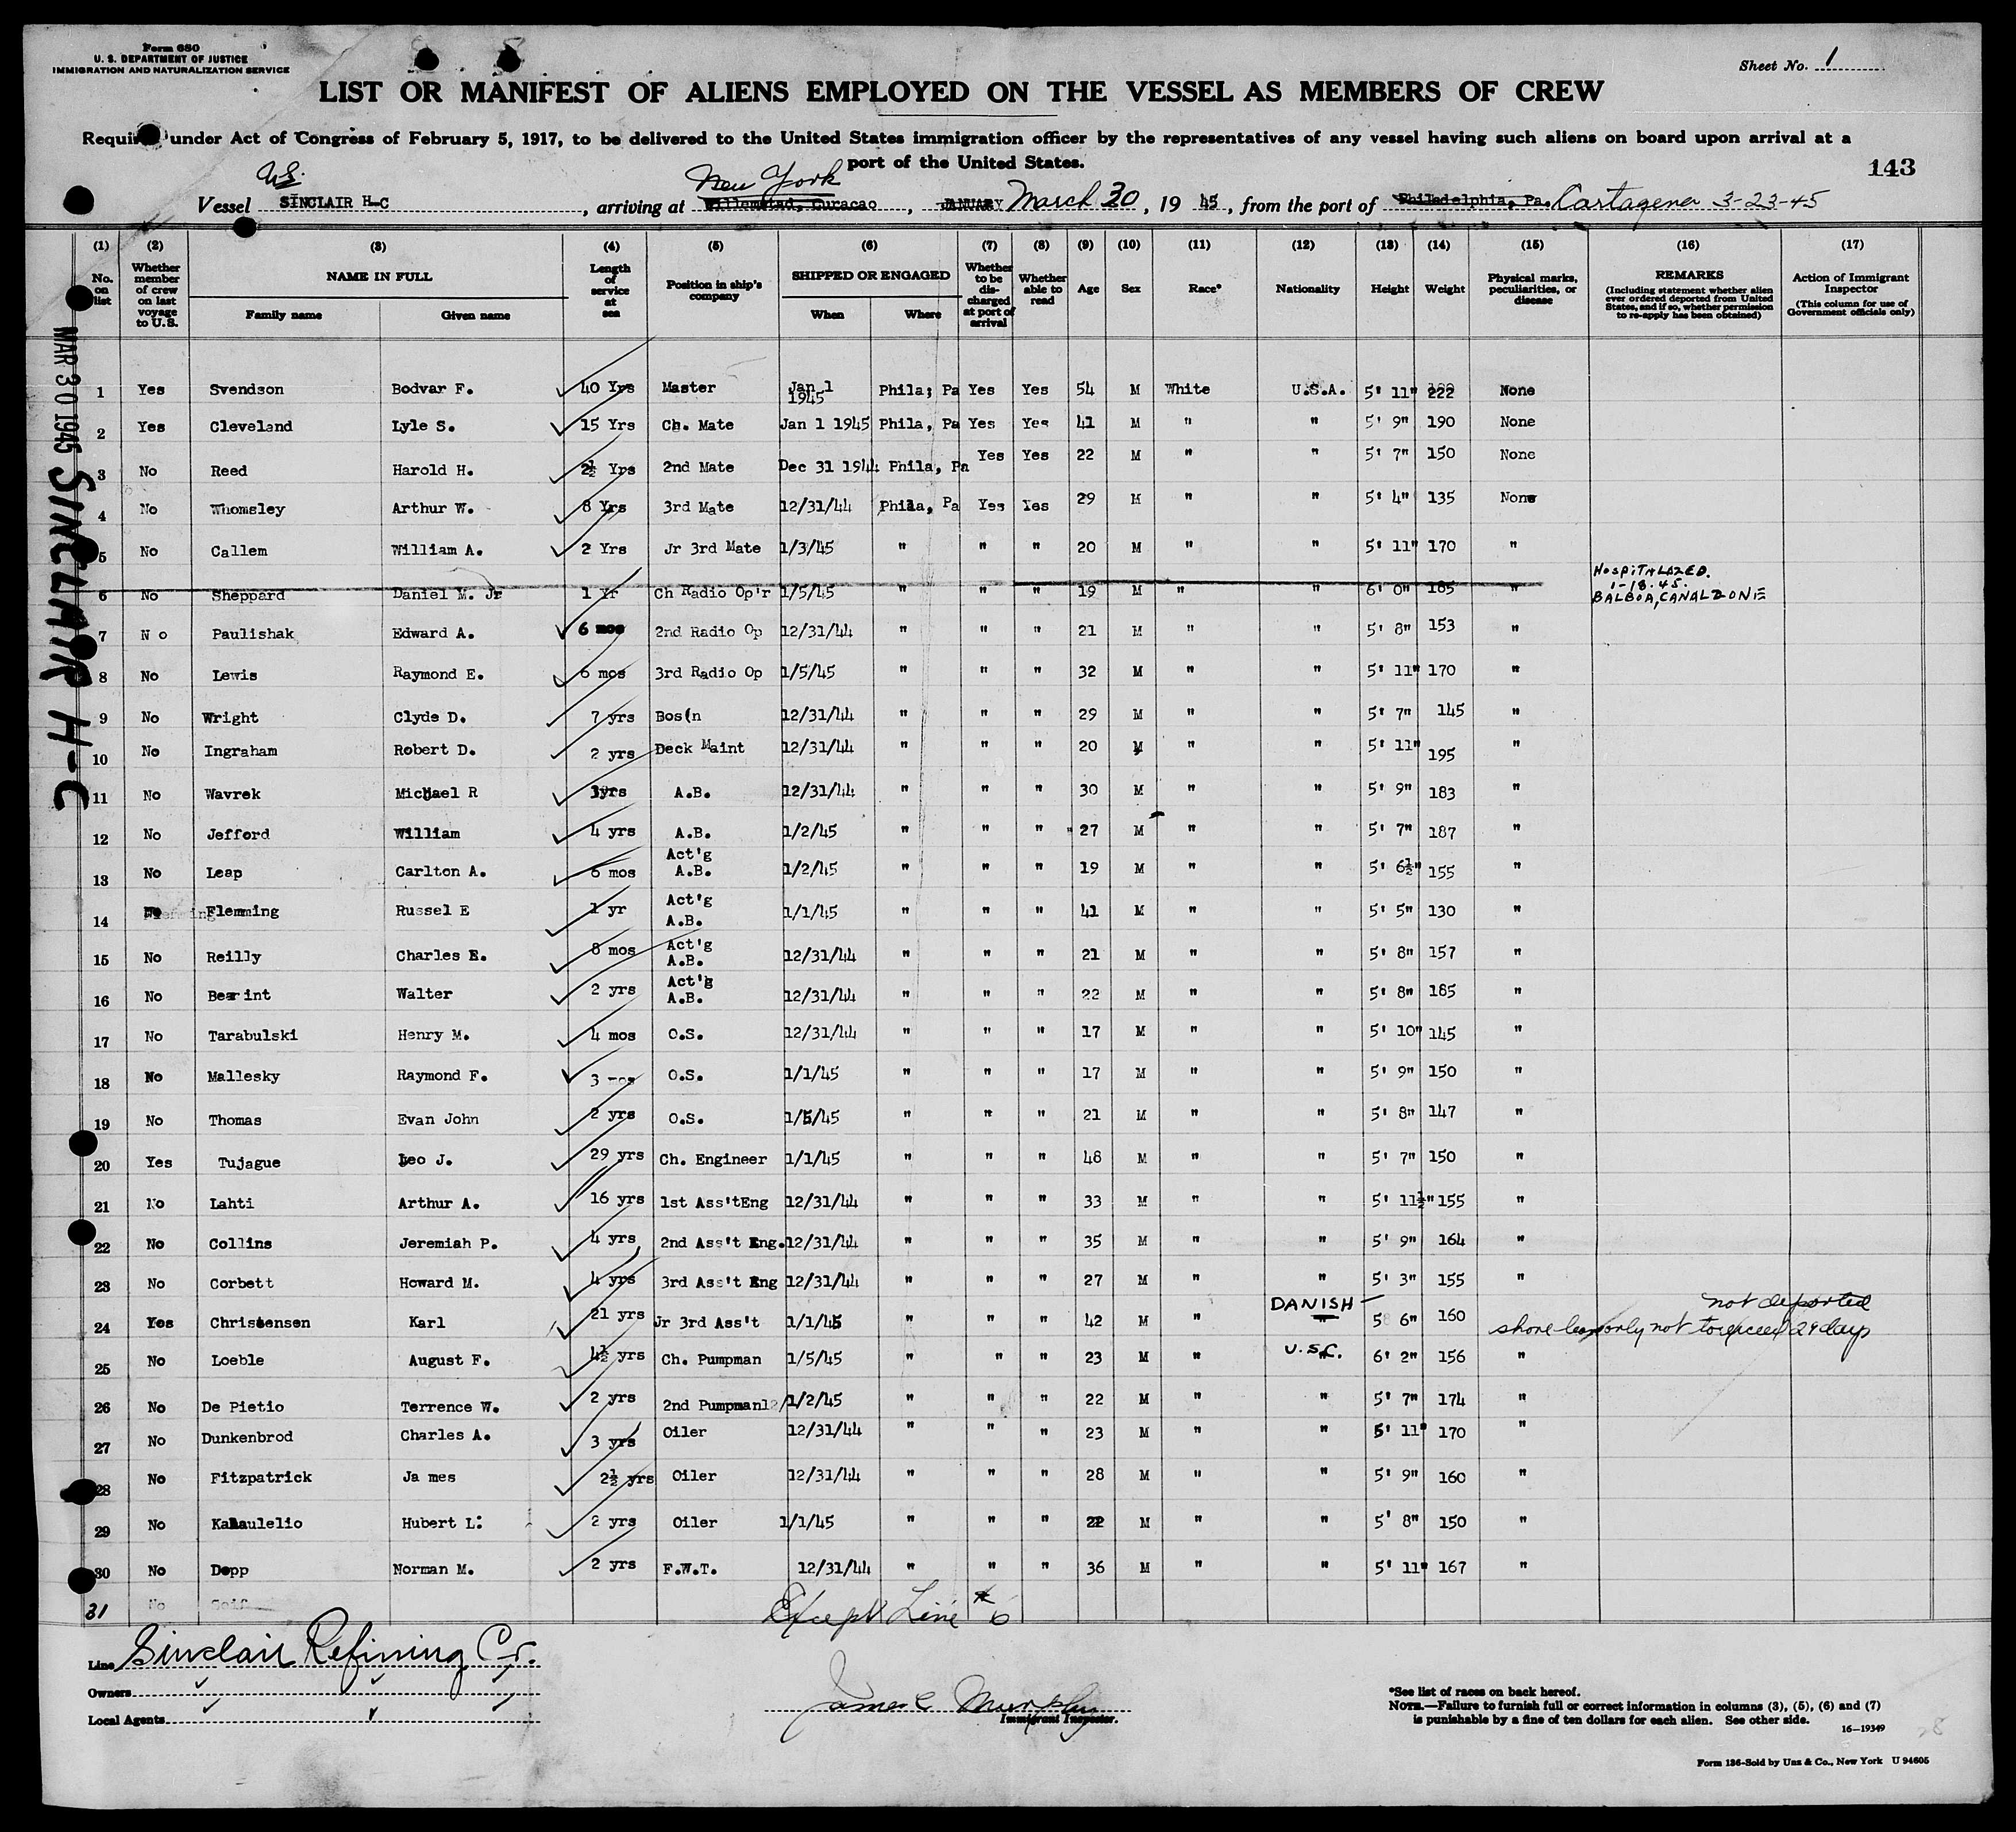 Form 680
U. S. DEPARTMENT OF JUSTICE
IMMIGRATION AND NATURALIZATION SERVICE
Sheet No. 1
LIST OR MANIFEST OF ALIENS EMPLOYED ON THE VESSEL AS MEMBERS OF CREW
Required under Act of Congress of February 5, 1917, to be delivered to the United States immigration officer by the representatives of any vessel having such aliens on board upon arrival at a
port of the United States.
143
Vessel SINCLAIR H-C, arriving at Willemstad, Curacao New York, JANUARY March 30, 19 45, from the port of Philadelphia, Pa. Cartagena 3-23-45
(1) (2) (3) (4) (5) (6) (7) (8) (9) (10) (11) (12) (13) (14) (15) (16) (17)
No. on list
Whether member of crew on last voyage to U.S.
NAME IN FULL
Family name Given name
Length of service at sea
Position in ship's company
SHIPPED OR ENGAGED
When Where
Whether to be discharged at port of arrival
Whether able to read
Age
Sex
Race*
Nationality
Height
Weight
Physical marks, peculiarities, or disease
REMARKS
(Including statement whether alien ever ordered deported from United States, and if so, whether permission to re-apply has been obtained)
Action of Immigrant Inspector
(This column for use of Government officials only)
MAR 30 1945 SINCLAIR H-C
1 Yes Svendson Bodvar F. 40 Yrs Master Jan 1 1945 Phila; Pa Yes Yes 54 M White U.S.A. 5' 11" 222 None
2 Yes Cleveland Lyle S. 15 Yrs Ch. Mate Jan 1 1945 Phila, Pa Yes Yes 41 M " " 5' 9" 190 None
3 No Reed Harold H. 2½ Yrs 2nd Mate Dec 31 1944 Phila, Pa Yes Yes 22 M " " 5' 7" 150 None
4 No Whomsley Arthur W. 8 Yrs 3rd Mate 12/31/44 Phila, Pa Yes Yes 29 M " " 5' 4" 135 None
5 No Callem William A. 2 Yrs Jr 3rd Mate 1/3/45 " " " 20 M " " 5' 11" 170 "
6 No Sheppard Daniel M. Jr 1 Yr Ch Radio Op'r 1/5/45 " " " 19 M " " 6' 0" 185 " HOSPITALIZED. 1-18-45. BALBOA, CANAL ZONE
7 N o Paulishak Edward A. 6 mos 2nd Radio Op 12/31/44 " " " 21 M " " 5' 8" 153 "
8 No Lewis Raymond E. 6 mos 3rd Radio Op 1/5/45 " " " 32 M " " 5' 11" 170 "
9 No Wright Clyde D. 7 yrs Bos(n 12/31/44 " " " 29 M " " 5' 7" 145 "
10 No Ingraham Robert D. 2 yrs Deck Maint 12/31/44 " " " 20 M " " 5' 11" 195 "
11 No Wavrek Michael R yrs A.B. 12/31/44 " " " 30 M " " 5' 9" 183 "
12 No Jefford William 4 yrs A.B. 1/2/45 " " " 27 M " " 5' 7" 187 "
13 No Leap Carlton A. 6 mos Act'g A.B. 1/2/45 " " " 19 M " " 5' 6½" 155 "
14 No Flemming Russel E 1 yr Act'g A.B. 1/1/45 " " " 41 M " " 5' 5" 130 "
15 No Reilly Charles E. 8 mos Act'g A.B. 12/31/44 " " " 21 M " " 5' 8" 157 "
16 No Bearint Walter 2 yrs Act'g A.B. 12/31/44 " " " 22 M " " 5' 8" 185 "
17 No Tarabulski Henry M. 4 mos O.S. 12/31/44 " " " 17 M " " 5' 10" 145 "
18 No Mallesky Raymond F. 3 mos O.S. 1/1/45 " " " 17 M " " 5' 9" 150 "
19 No Thomas Evan John 2 yrs O.S. 1/5/45 " " " 21 M " " 5' 8" 147 "
20 Yes Tujague Leo J. 29 yrs Ch. Engineer 1/1/45 " " " 48 M " " 5' 7" 150 "
21 No Lahti Arthur A. 16 yrs 1st Ass'tEng 12/31/44 " " " 33 M " " 5' 11½" 155 "
22 No Collins Jeremiah P. 4 yrs 2nd Ass't Eng. 12/31/44 " " " 35 M " " 5' 9" 164 "
23 No Corbett Howard M. 4 yrs 3rd Ass't Eng 12/31/44 " " " 27 M " " 5' 3" 155 "
24 Yes Christensen Karl 21 yrs Jr 3rd Ass't 1/1/45 " " " 42 M " DANISH 5 6" 160 not deported shore leave only not to exceed 29 days
25 No Loeble August F. 4½ yrs Ch. Pumpman 1/5/45 " " " 23 M " U.S.C. 6' 2" 156 "
26 No De Pietio Terrence W. 2 yrs 2nd Pumpman 1/2/45 " " " 22 M " " 5' 7" 174 "
27 No Dunkenbrod Charles A. 3 yrs Oiler 12/31/44 " " " 23 M " " 5' 11" 170 "
28 No Fitzpatrick Ja mes 2½ yrs Oiler 12/31/44 " " " 28 M " " 5' 9" 160 "
29 No Kaaaulelio Hubert L: 2 yrs Oiler 1/1/45 " " " 22 M " " 5' 8" 150 "
30 No Depp Norman M. 2 yrs F.W.T. 12/31/44 " " " 36 M " " 5' 11" 167 "
31 No
Except Line # 6
Line Sinclair Refining Co.
Owners
Local Agents
James C Murphy
Immigrant Inspector.
*See list of races on back hereof.
NOTE.—Failure to furnish full or correct information in columns (3), (5), (6) and (7)
is punishable by a fine of ten dollars for each alien. See other side.
16—19349
Form 136-Sold by Unz & Co., New York U 94605